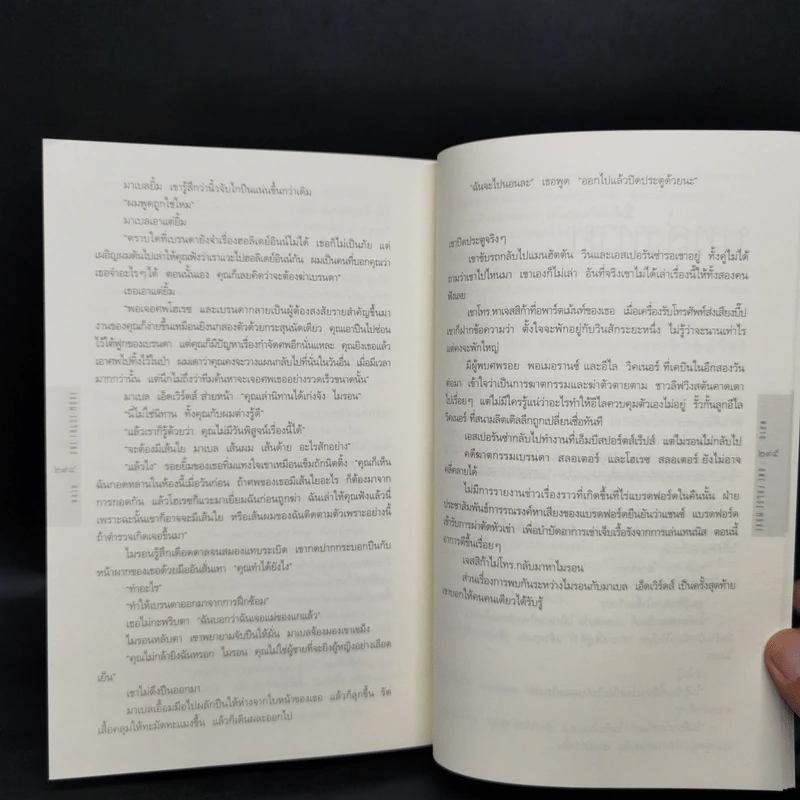 มาเบลยิ้ม เขารู้สึกว่านิ้วจับไกปืนแน่นขึ้นกว่าเดิม
"ผมพูดถูกใช่ไหม"
มาเบลเอาแต่ยิ้ม
"ตราบใดที่เบรนดายังจำเรื่องฮอลิเดย์อินน์ไม่ได้ เธอก็ไม่เป็นภัย แต่
เผอิญผมดันไปเล่าให้คุณฟังว่าเราแวะไปฮอลิเดย์อินน์กัน ผมเป็นคนที่บอกคุณว่า
เธอจำอะไรๆได้ ตอนนั้นเอง คุณก็เลยคิดว่าจะต้องฆ่าเบรนดา"
เธอเอาแต่ยิ้ม
"พอเจอศพโฮเรซ และเบรนดากลายเป็นผู้ต้องสงสัยรายสำคัญขึ้นมา
งานของคุณก็ง่ายขึ้นเหมือนยิงกลองตัวด้วยกระสุนนัดเดียว คุณเอาปืนไปซ่อน
ไว้ใต้ฟูกของเบรนดา แต่คุณก็มีปัญหาเรื่องกำจัดศพอีกนั่นแหละ คุณยิงเธอแล้ว
เอาศพไปทิ้งไว้ในป่า ผมเดาว่าคุณคงจะวางแผนกลับไปที่นั่นในวันอื่น เมื่อมีเวลา
มากกว่านั้น แต่นึกไม่ถึงว่าทีมค้นหาจะเจอศพเธออย่างรวดเร็วขนาดนั้น"
มาเบล เอ็ดเวิร์ดส์ ส่ายหน้า "คุณเล่านิทานได้เก่งจัง ไมรอน"
"นี่ไม่ใช่นิทาน ทั้งคุณกับผมต่างรู้ดี"
"แล้วเราก็รู้ด้วยว่า คุณไม่มีวันพิสูจน์เรื่องนี้ได้"
"จะต้องมีเส้นใย มาเบล เส้นผม เส้นด้าย อะไรสักอย่าง"
"แล้วไง" รอยยิ้มของเธอทิ่มแทงใจเขาเหมือนเข็มถักนิตติ้ง "คุณก็เห็น
ฉันกอดหลานในห้องนี้เมื่อวันก่อน ถ้าศพของเธอมีเส้นใยอะไร ก็ต้องมาจาก
การกอดกัน แล้วโฮเรซก็แวะมาเยี่ยมฉันก่อนถูกฆ่า ฉันเล่าให้คุณฟังแล้วนี่
เพราะฉะนั้นเขาก็อาจจะมีเส้นใย หรือเส้นผมของฉันติดตามตัวเพราะอย่างนี้
ถ้าตำรวจเกิดเจอขึ้นมา"
ไมรอนรู้สึกเดือดดาลจนสมองแทบระเบิด เขากดปากกระบอกปืนกับ
หน้าผากของเธอด้วยมืออันสั่นเทา "คุณทำได้ยังไง"
"ทำอะไร"
"ทำให้เบรนดาออกมาจากการฝึกซ้อม"
เธอไม่กะพริบตา "ฉันบอกว่าฉันเจอแม่ของแกแล้ว"
ไมรอนหลับตา เขาพยายามจับปืนให้มั่น มาเบลจ้องมองเขาเขม็ง
"คุณไม่กล้ายิงฉันหรอก ไมรอน คุณไม่ใช่ผู้ชายที่จะยิงผู้หญิงอย่างเลือด
เย็น"
เขาไม่ดึงปืนออกมา
มาเบลเอื้อมมือไปผลักปืนให้ห่างจากใบหน้าของเธอ แล้วก็ลุกขึ้น รัด
เสื้อคลุมให้ทะมัดทะแมงขึ้น แล้วก็เดินผละออกไป
๒๙๔
"ฉันจะไปนอนละ" เธอพูด "ออกไปแล้วปิดประตูด้วยนะ"
เขาปิดประตูจริงๆ
เขาขับรถกลับไปแมนฮัตตัน วินและเอสเปอรันซ่ารอเขาอยู่ ทั้งคู่ไม่ได้
ถามว่าเขาไปไหนมา เขาเองก็ไม่เล่า อันที่จริงเขาไม่ได้เล่าเรื่องนี้ให้ทั้งสองคน
ฟังเลย
เขาโทร.หาเจสสิก้าที่อพาร์ตเม้นท์ของเธอ เมื่อเครื่องรับโทรศัพท์ส่งเสียงบี๊ป
เขาก็ฝากข้อความว่า ตั้งใจจะพักอยู่กับวินสักระยะหนึ่ง ไม่รู้ว่าจะนานเท่าไร
แต่คงจะพักใหญ่
มีผู้พบศพรอย พอเมอรานซ์ และอีไล วิคเนอร์ ที่เคบินในอีกสองวัน
ต่อมา เข้าใจว่าเป็นการฆาตกรรมและฆ่าตัวตายตาม ชาวลิฟวิงสตันคาดเดา
ไปเรื่อยๆ แต่ไม่มีใครรู้แน่ว่าอะไรทำให้อีไลควบคุมตัวเองไม่อยู่ รั้วกั้นลูกอีไล
วิคเนอร์ ที่สนามลิตเติลลีกถูกเปลี่ยนชื่อทันที
เอสเปอรันซ่ากลับไปทำงานที่เอ็มบีสปอร์ตส์เร็ปส์ แต่ไมรอนไม่กลับไป
คดีฆาตกรรมเบรนดา สลอเตอร์ และโฮเรซ สลอเตอร์ ยังไม่อาจ
คลี่คลายได้
ไม่มีการรายงานข่าวเรื่องราวที่เกิดขึ้นที่ไร่แบรดฟอร์ดในคืนนั้น ฝ่าย
ประชาสัมพันธ์การรณรงค์หาเสียงของแบรดฟอร์ดยืนยันว่าแชนซ์ แบรดฟอร์ด
เข้ารับการผ่าตัดหัวเข่า เพื่อบำบัดอาการเข่าเจ็บเรื้อรังจากการเล่นเทนนิส ตอนนี้
อาการดีขึ้นเรื่อยๆ
เจสสิก้าไม่โทร.กลับมาหาไมรอน
ส่วนเรื่องการพบกันระหว่างไมรอนกับมาเบล เอ็ดเวิร์ดส์ เป็นครั้งสุดท้าย
เขาบอกให้คนคนเดียวได้รับรู้
๒๙๕
ONE FALSE MOVE